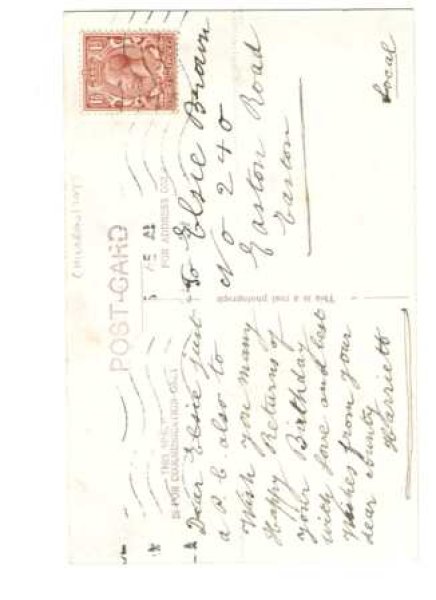 POST-CARD
THIS SPACE
IS FOR COMMUNICATION ONLY
FOR ADDRESS ONLY
Dear Elsie Just
a P. C. also to
Wish you Many
Happy Returns of
your Birthday
with love and best
Wishes from your
dear county
Harriett
This is a real photograph
To Elsie Brown
No 240
Easton Road
Easton
Local